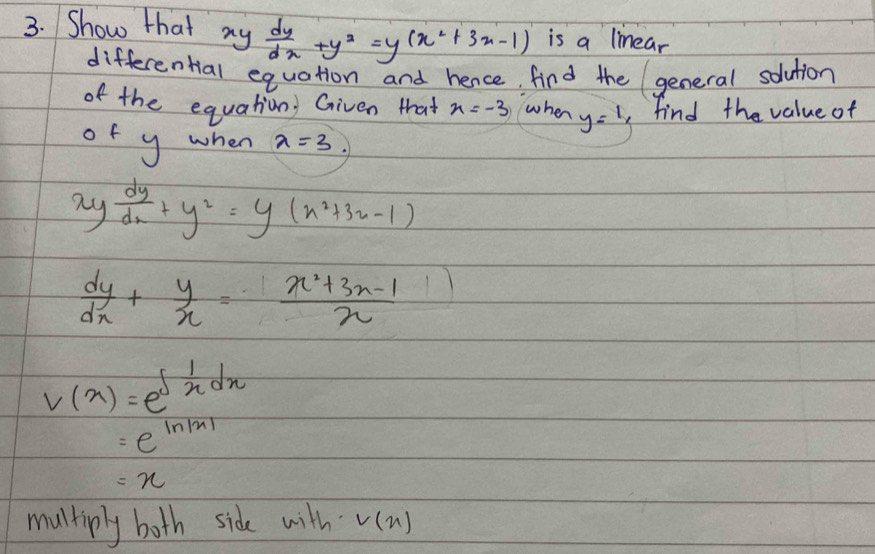 3. Show that xy dy/dx + y² = y(x² + 3x - 1) is a linear
differential equation and hence, find the general solution
of the equation. Given that x = -3 when y = 1, find the value of
of y when x = 3.
xy dy/dx + y² = y (x² + 3x - 1)
dy/dx + y/x = x² + 3x - 1 / x
V(x) = e^∫ 1/x dx
= e^ln|x|
= x
multiply both side with V(x)